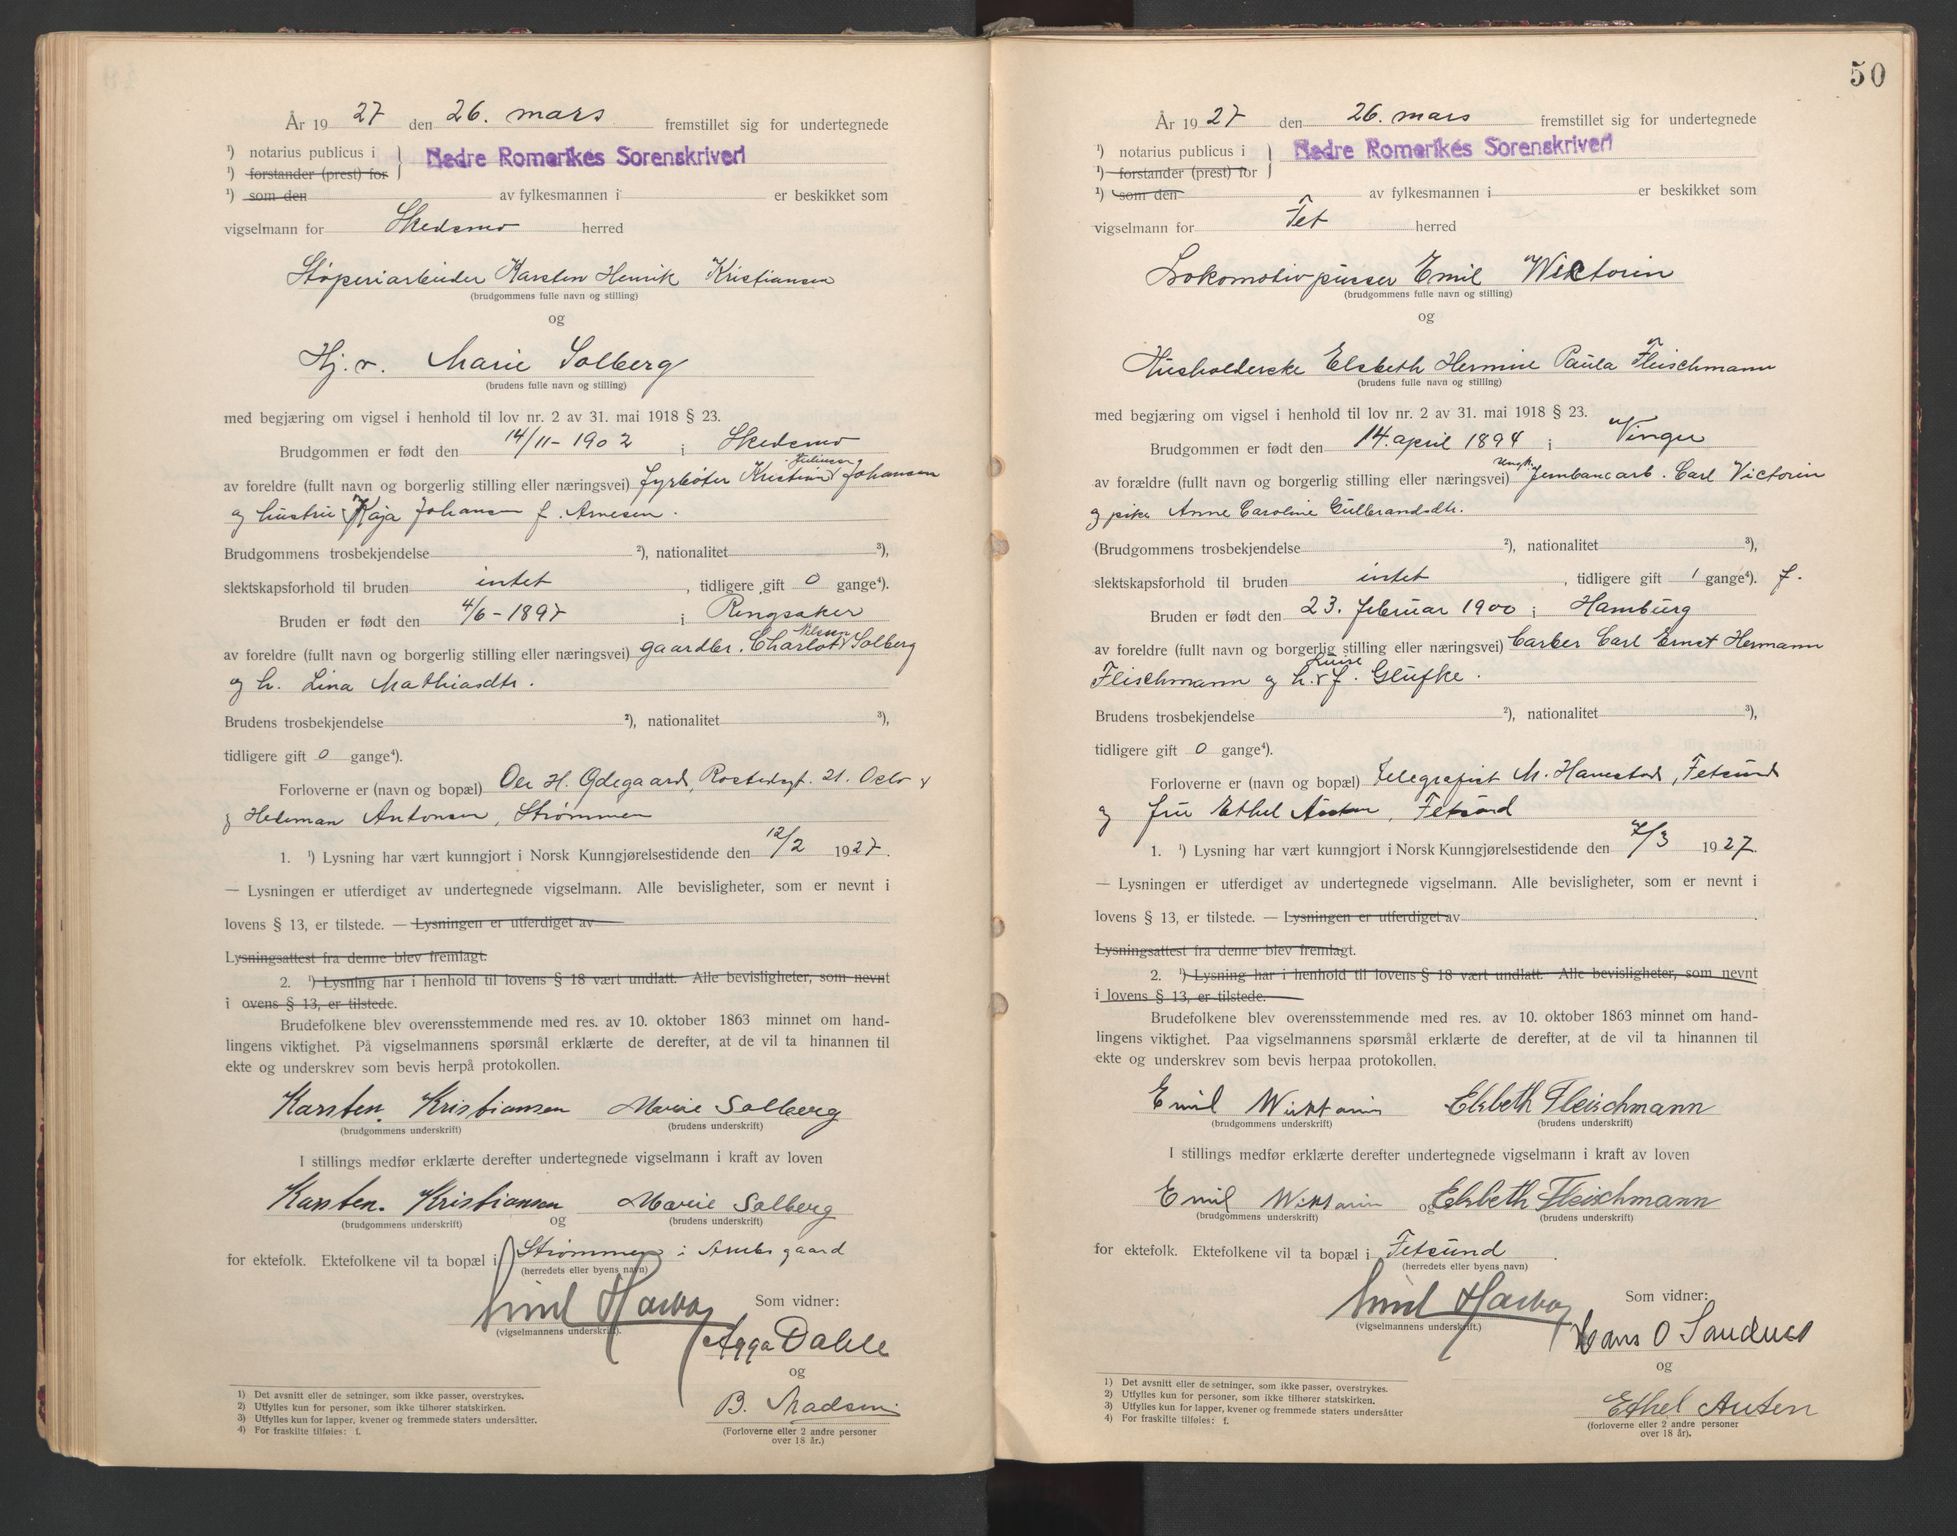 År 1927 den 26. mars fremstillet sig for undertegnede
¹) notarius publicus i } Nedre Romerikes Sorenskriveri
¹) forstander (prest) for
¹) som den av fylkesmannen i er beskikket som
vigselmann for Skedsmo herred
Støperiarbeider Karsten Henrik Kristiansen
(brudgommens fulle navn og stilling)
og
Hj. v. Marie Solberg
(brudens fulle navn og stilling)
med begjæring om vigsel i henhold til lov nr. 2 av 31. mai 1918 § 23.
Brudgommen er født den 14/11-1902 i Skedsmo
av foreldre (fullt navn og borgerlig stilling eller næringsvei) fyrbøter Kristian Julius Johansen
og hustru Kaja Johansen f. Arnesen.
Brudgommens trosbekjendelse ²), nationalitet ³),
slektskapsforhold til bruden intet, tidligere gift 0 gange⁴).
Bruden er født den 4/6-1897 i Ringsaker
av foreldre (fullt navn og borgerlig stilling eller næringsvei) gaardbr. Charlot Nilsen Solberg
og h. Lina Mathiasdtr.
Brudens trosbekjendelse ²), nationalitet ³),
tidligere gift 0 gange⁴).
Forloverne er (navn og bopæl) Ole H. Ødegaard, Rostedsgt. 21. Oslo
og Hedeman Antonsen, Strømmen
1. ¹) Lysning har vært kunngjort i Norsk Kunngjørelsestidende den 12/2 1927.
— Lysningen er utferdiget av undertegnede vigselmann. Alle bevisligheter, som er nevnt i
lovens § 13, er tilstede. — Lysningen er utferdiget av
Lysningsattest fra denne blev fremlagt.
2. ¹) Lysning har i henhold til lovens § 18 vært undlatt. Alle bevisligheter, som nevnt
i ovens § 13, er tilstede.
Brudefolkene blev overensstemmende med res. av 10. oktober 1863 minnet om hand-
lingens viktighet. På vigselmannens spørsmål erklærte de derefter, at de vil ta hinannen til
ekte og underskrev som bevis herpå protokollen.
Karsten. Kristiansen Marie Solberg
(brudgommens underskrift) (brudens underskrift)
I stillings medfør erklærte derefter undertegnede vigselmann i kraft av loven
Karsten. Kristiansen og Marie Solberg
(brudgommens underskrift) (brudens underskrift)
for ektefolk. Ektefolkene vil ta bopæl i Strømmen i gaard
(herredets eller byens navn)
Som vidner:
(vigselmannens underskrift).
Agga Dahle
og
B. Madsen
(Forloverne eller 2 andre personer
over 18 år.)
1) Det avsnitt eller de setninger, som ikke passer, overstrykes.
2) Utfylles kun for personer, som ikke tilhører statskirken.
3) Utfylles kun for lapper, kvener og fremmede staters undersåtter.
4) For fraskilte tilføies: f.
50
År 1927 den 26. mars fremstillet sig for undertegnede
¹) notarius publicus i } Nedre Romerikes Sorenskriveri
¹) forstander (prest) for
¹) som den av fylkesmannen i er beskikket som
vigselmann for Fet herred
Lokomotivpusser Emil Wictorin
(brudgommens fulle navn og stilling)
og
Husholderske Elsbeth Hermine Paula Fleischmann
(brudens fulle navn og stilling)
med begjæring om vigsel i henhold til lov nr. 2 av 31. mai 1918 § 23.
Brudgommen er født den 14. april 1894 i Vinger
av forældre (fullt navn og borgerlig stilling eller næringsvei) Ungk. Jernbanearb. Carl Victorin
og pike Anne Caroline Gulbrandsdtr.
(Brudgommens trosbekjendelse ²), nationalitet ³),
slektskapsforhold til bruden intet, tidligere gift 1 gange⁴). f.
Bruden er født den 23. februar 1900 i Hamburg
av foreldre (fullt navn og borgerlig stilling eller næringsvei) Carl Ernst Hermann
Fleischmann og h. Luise f. Glufke.
Brudens trosbekjendelse ²), nationalitet ³),
tidligere gift 0 gange⁴).
Forloverne er (navn og bopæl) Telegrafist M. Hanestad, Fetsund
og fru Ethel Austen, Fetsund
1. ¹) Lysning har vært kunngjort i Norsk Kunngjørelsestidende den 7/3 1927.
— Lysningen er utferdiget av undertegnede vigselmann. Alle bevisligheter, som er nevnt i
lovens § 13, er tilstede. — Lysningen er utferdiget av
Lysningsattest fra denne blev fremlagt.
2. ¹) Lysning har i henhold til lovens § 18 vært undlatt. Alle bevisligheter, som nevnt
i lovens § 13, er tilstede.
Brudefolkene blev overensstemmende med res. av 10. oktober 1863 minnet om hand-
lingens viktighet. Paa vigselmannens spørsmål erklærte de derefter, at de vil ta hinannen til
ekte og underskrev som bevis herpaa protokollen.
Emil Wiktorin Elsbeth Fleischmann
(brudgommens underskrift) (brudens underskrift)
I stillings medfør erklærte derefter undertegnede vigselmann i kraft av loven
Emil Wiktorin og Elsbeth Fleischmann
(brudgommens underskrift) (brudens underskrift)
for ektefolk. Ektefolkene vil ta bopæl i Fetsund.
(herredets eller byens navn)
Som vidner:
(vigselmannens underskrift.)
Hans O Sandnes
og
Ethel Austen
(forloverne eller 2 andre personer
over 18 år).
1) Det avsnitt eller de setninger, som ikke passer, overstrykes.
2) Utfylles kun for personer, som ikke tilhører statskirken.
3) Utfylles kun for lapper, kvener og fremmede staters undersåtter
4) For fraskilte tilføies: f.